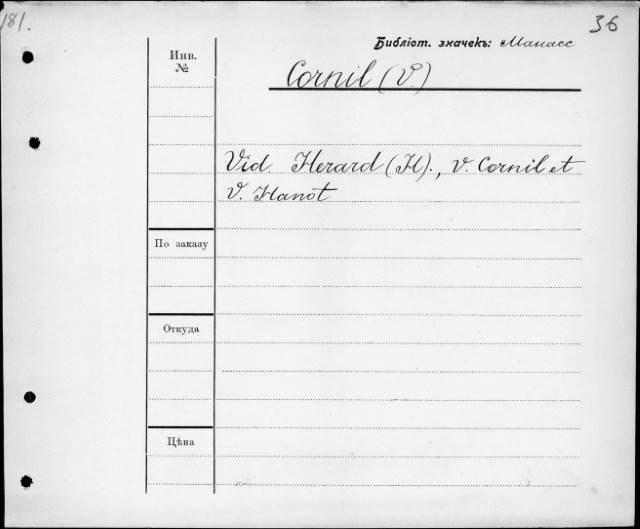 181.
36
Библіот. значекъ: Манасс
Инв. №
Cornil (V.)
Vid. Herard (H)., V. Cornil et
V. Hanot
По заказу
Откуда
Цѣна